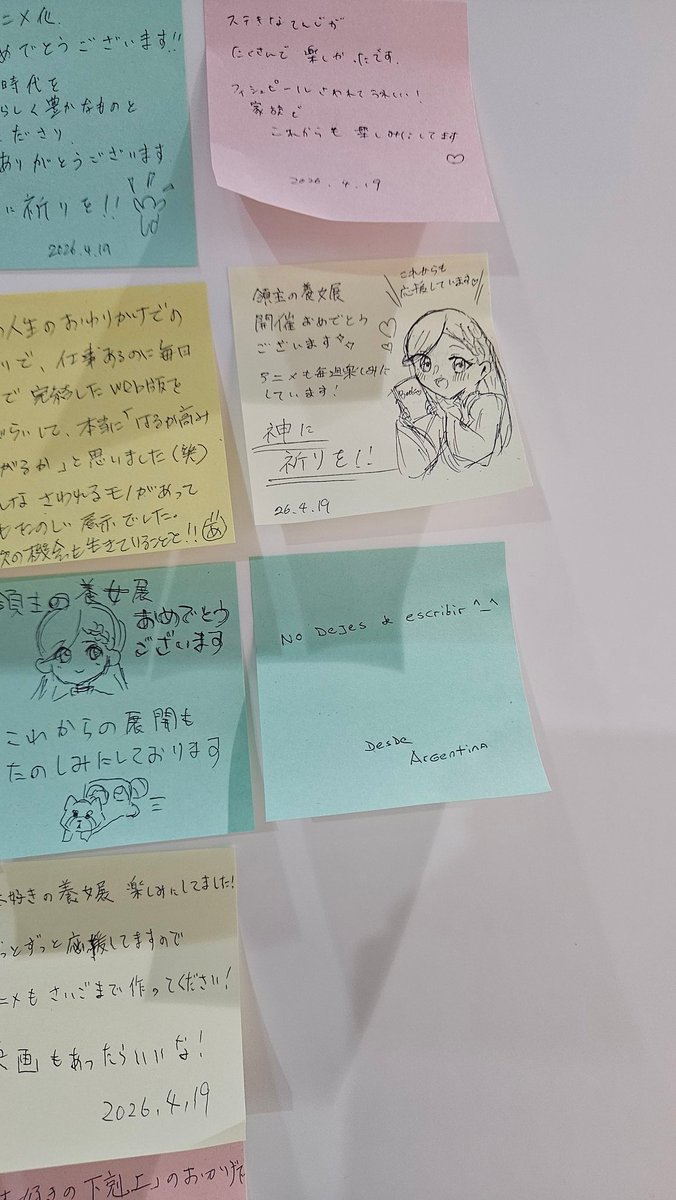 ニメ化
めでとうございます!!
時代を
らしく豊かなものと
ください
ありがとうございます
に祈りを!!
2026.4.19
ステキなてんじが
たくさんで 楽しかったです.
フィシュピールさわれてうれしい!
家族で
これからも 楽しみにしてます
♡
2026.4.19
人生のおわりかけでの
で、仕事あるのに毎日
で 完結したWeb版を
して、本当に「はるか高み
がるか」と思いました(笑)
さわれるモノがあって
たのしい展示でした。
次の機会も生きていることを!!
領主の養女展
開催おめでとう
ございます
アニメも毎週楽しみに
しています!
神に
祈りを!!
26.4.19
これからも
応援しています♡
領主の養女展
おめでとう
ございます
これからの展開も
たのしみにしております
No Dejes de escribir ^_^
Desde
Argentina
好きの養女展 楽しみにしてました!
っとずっと応援してますので
ニメも さいごまで作ってください!
映画もあったらいいな!
2026.4.19
好きの下剋上」のおかげで